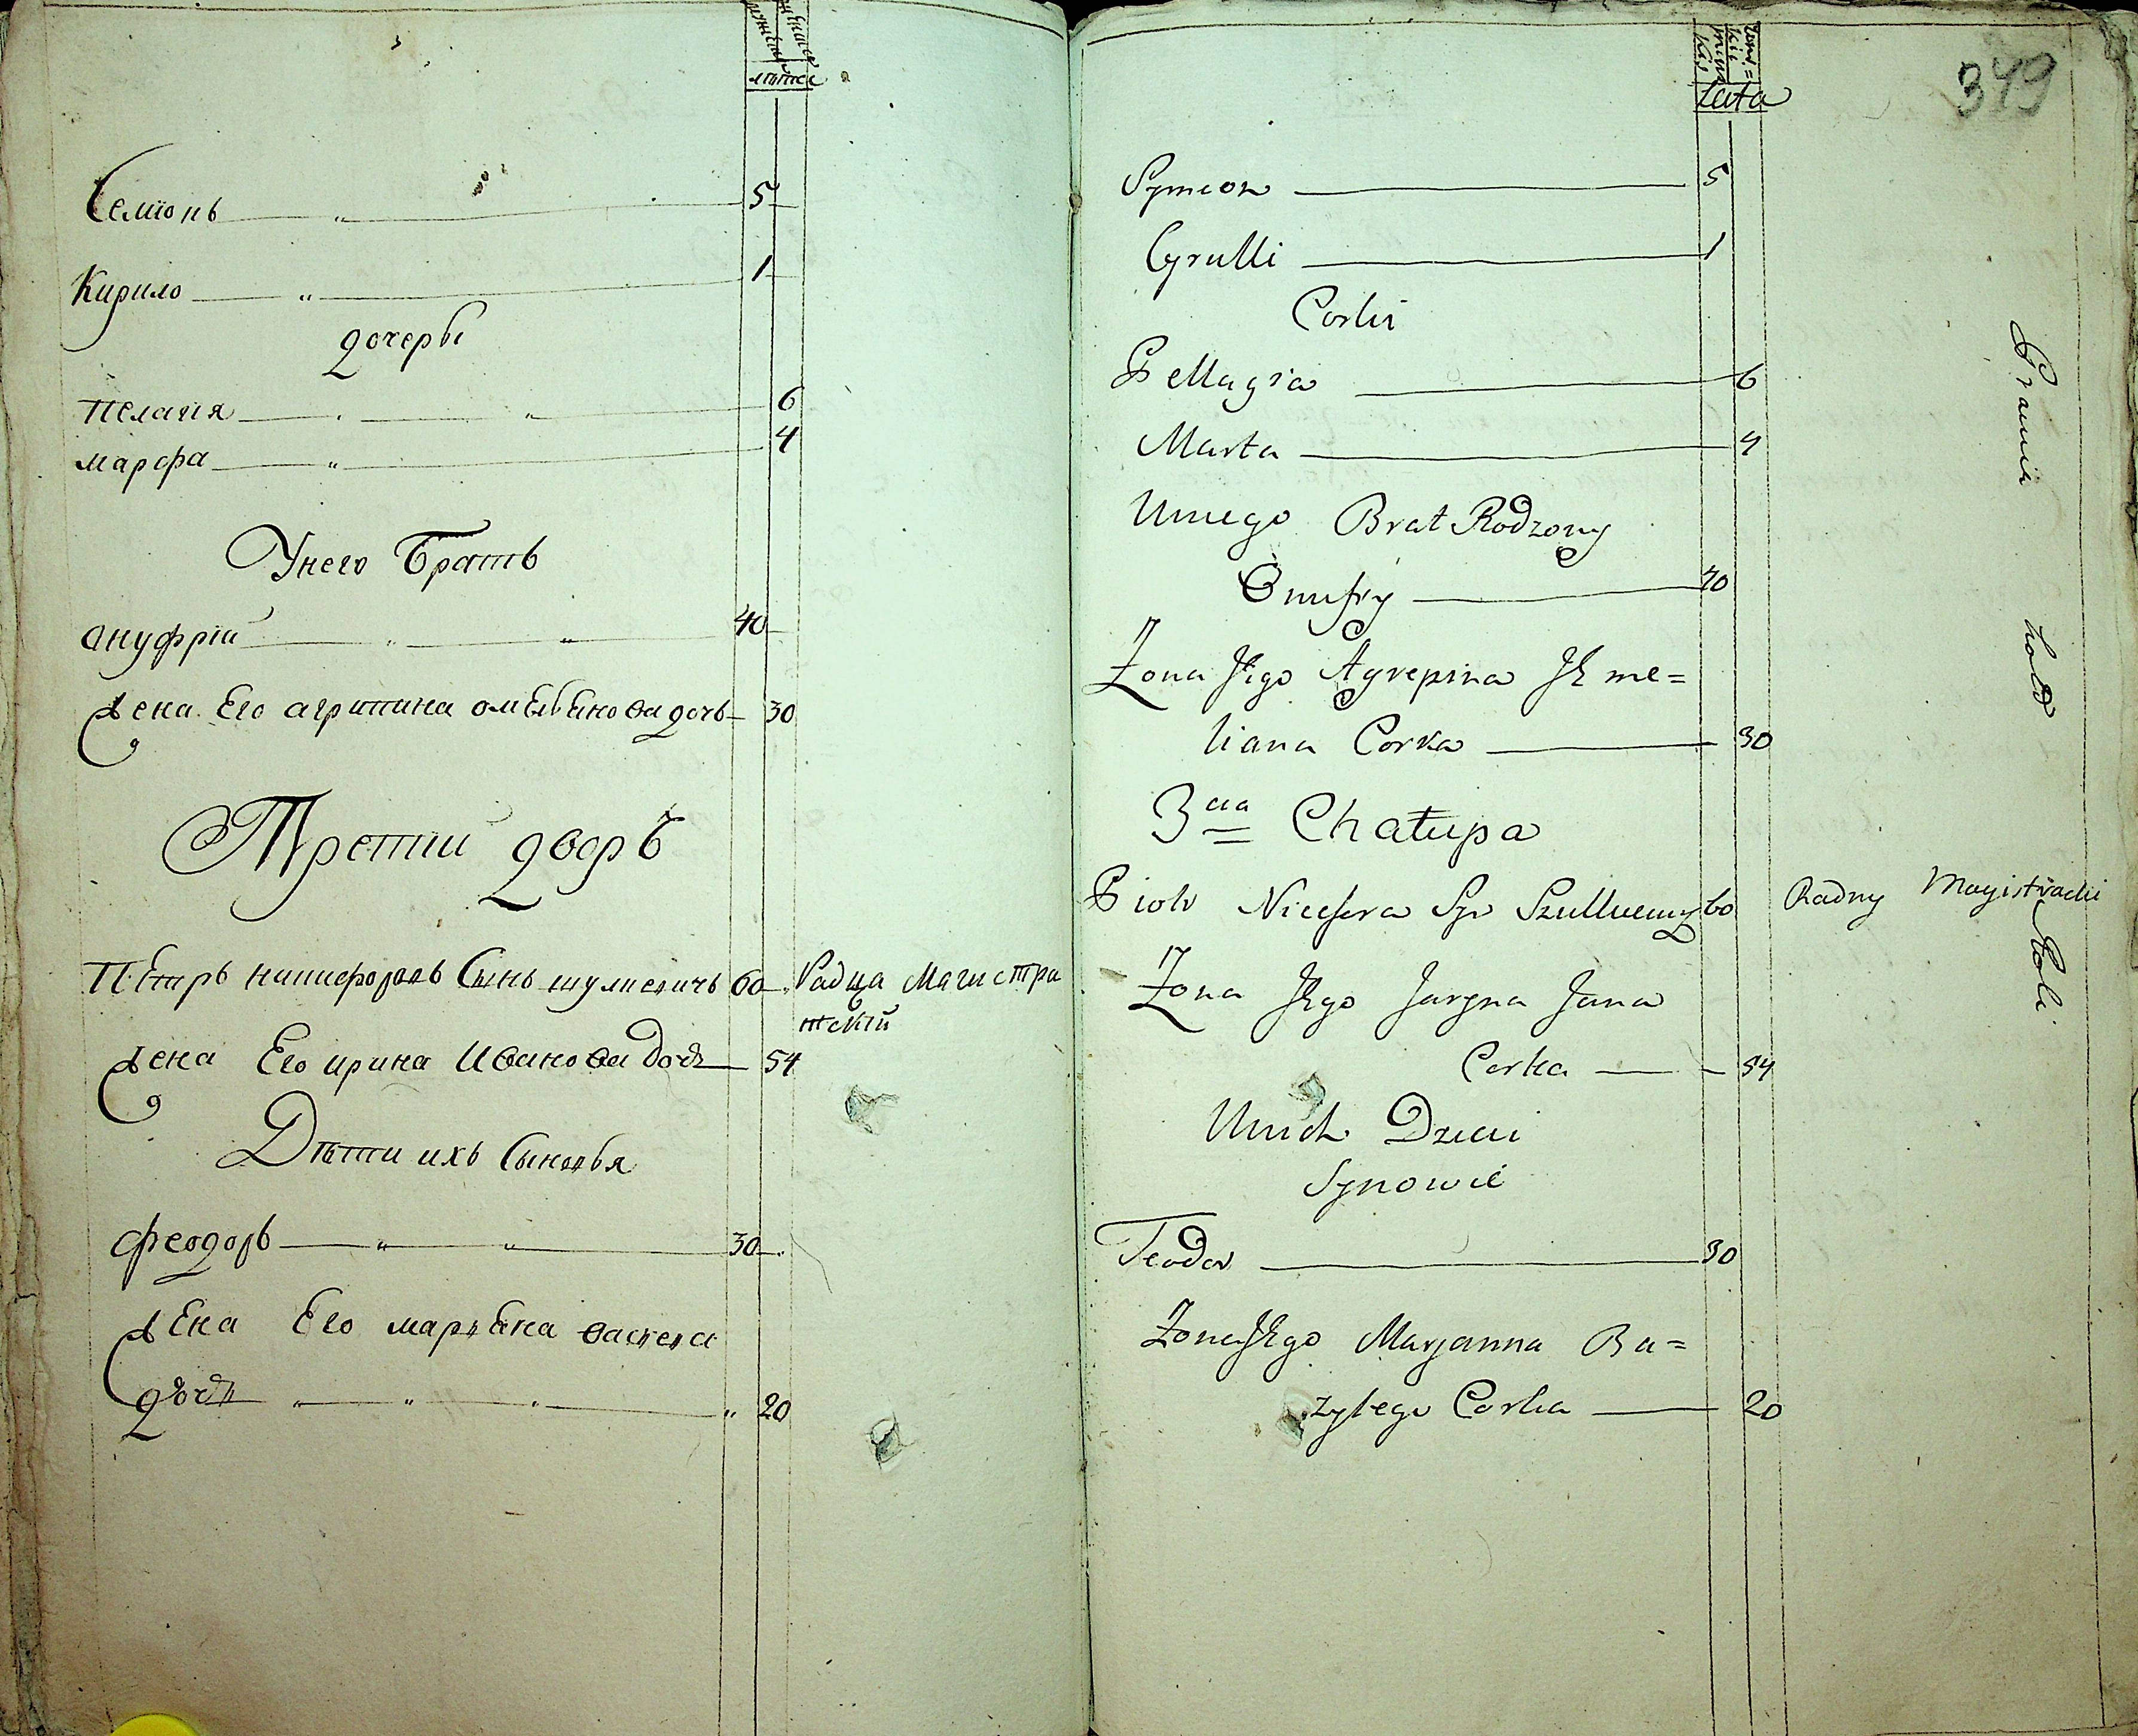 лѣта
Семионъ 5
Кирило 1
дочери
Пелагия 6
Марфа 4
Унего Братъ
Ануфрій 40
Жена Его агрипина омельянова дочь 30
Третий дворъ
Петръ никифоровъ Сынъ шулжевичъ 60 Радца Магистра
тскій
Жена Его ирина Иванова дочь 54
Дѣти ихъ Сыновья
Феодоръ 30
Жена Его марьяна васілева
дочь 20
349
Lata
Symeon 5
Cyrulli 1
Corki
Pellagia 6
Marta 4
Uniego Brat Rodzony
Onufry 40
Zona Jego Agrepina Jeme=
liana Corka 30
3cia Chałupa
Piotr Nicefora Syn 60 Radny Magistracki
Zona Jego Jaryna Jana
Corka 54
Unich Dzieci
Synowie
Teodor 30
Zona Jego Marjanna Ba=
zylego Corka 20